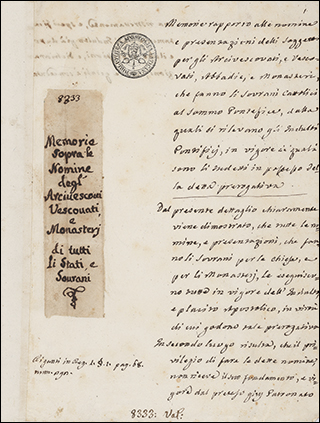 8333
Memorie
sopra le
Nomine
degl'
Arcivescovi
Vescovati,
e
Monasterj
di tutti
li Stati, e
Sovrani
Memorie rapporto alle nomine
e presentazioni delli Soggetti
per gli Arcivescovati, e Vesco-
vati, Abbadie, e Monasterj,
che fanno li Sovrani Cattolici
al Sommo Pontefice, dalla
quali si rilevano gli Indulti
Pontificj, in vigore de quali
sono li medesi in possesso del
la detta prerogativa.
Dal presente dettaglio chiaramente
viene dimostrato, che tutte le no-
mine, e presentazioni, che fan-
no li Sovrani per le chiese, e
per li Monasterj, le eseguisco-
no tutto in vigore dell' Indulto
e placito Apostolico, in virtù
di cui godono tale prerogativa
In secondo luogo risulta, che il pri-
vilegio di fare le dette nomine,
non riceve il suo fondamento, e vi-
gore dal preteso jus Patronato
pag. 68.
8333: Vat.